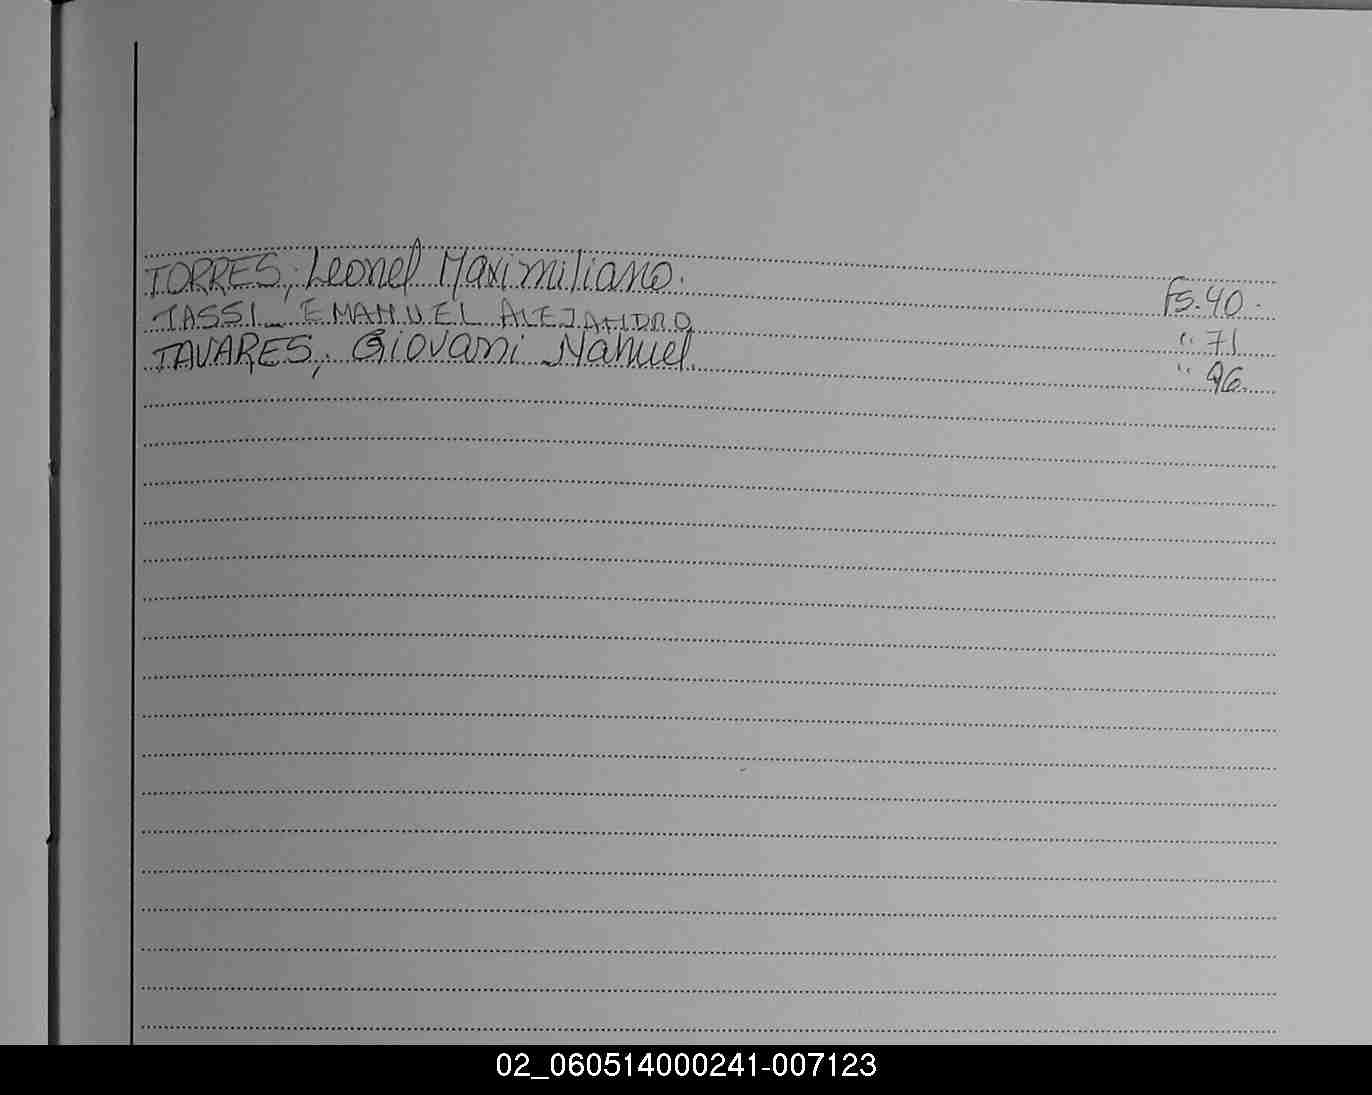 TORRES, Leonel Maximiliano. Fs. 40.
TASSI_ EMANUEL ALEJANDRO " 71
TAVARES, Giovani Nahuel. " 96.
02_060514000241-007123